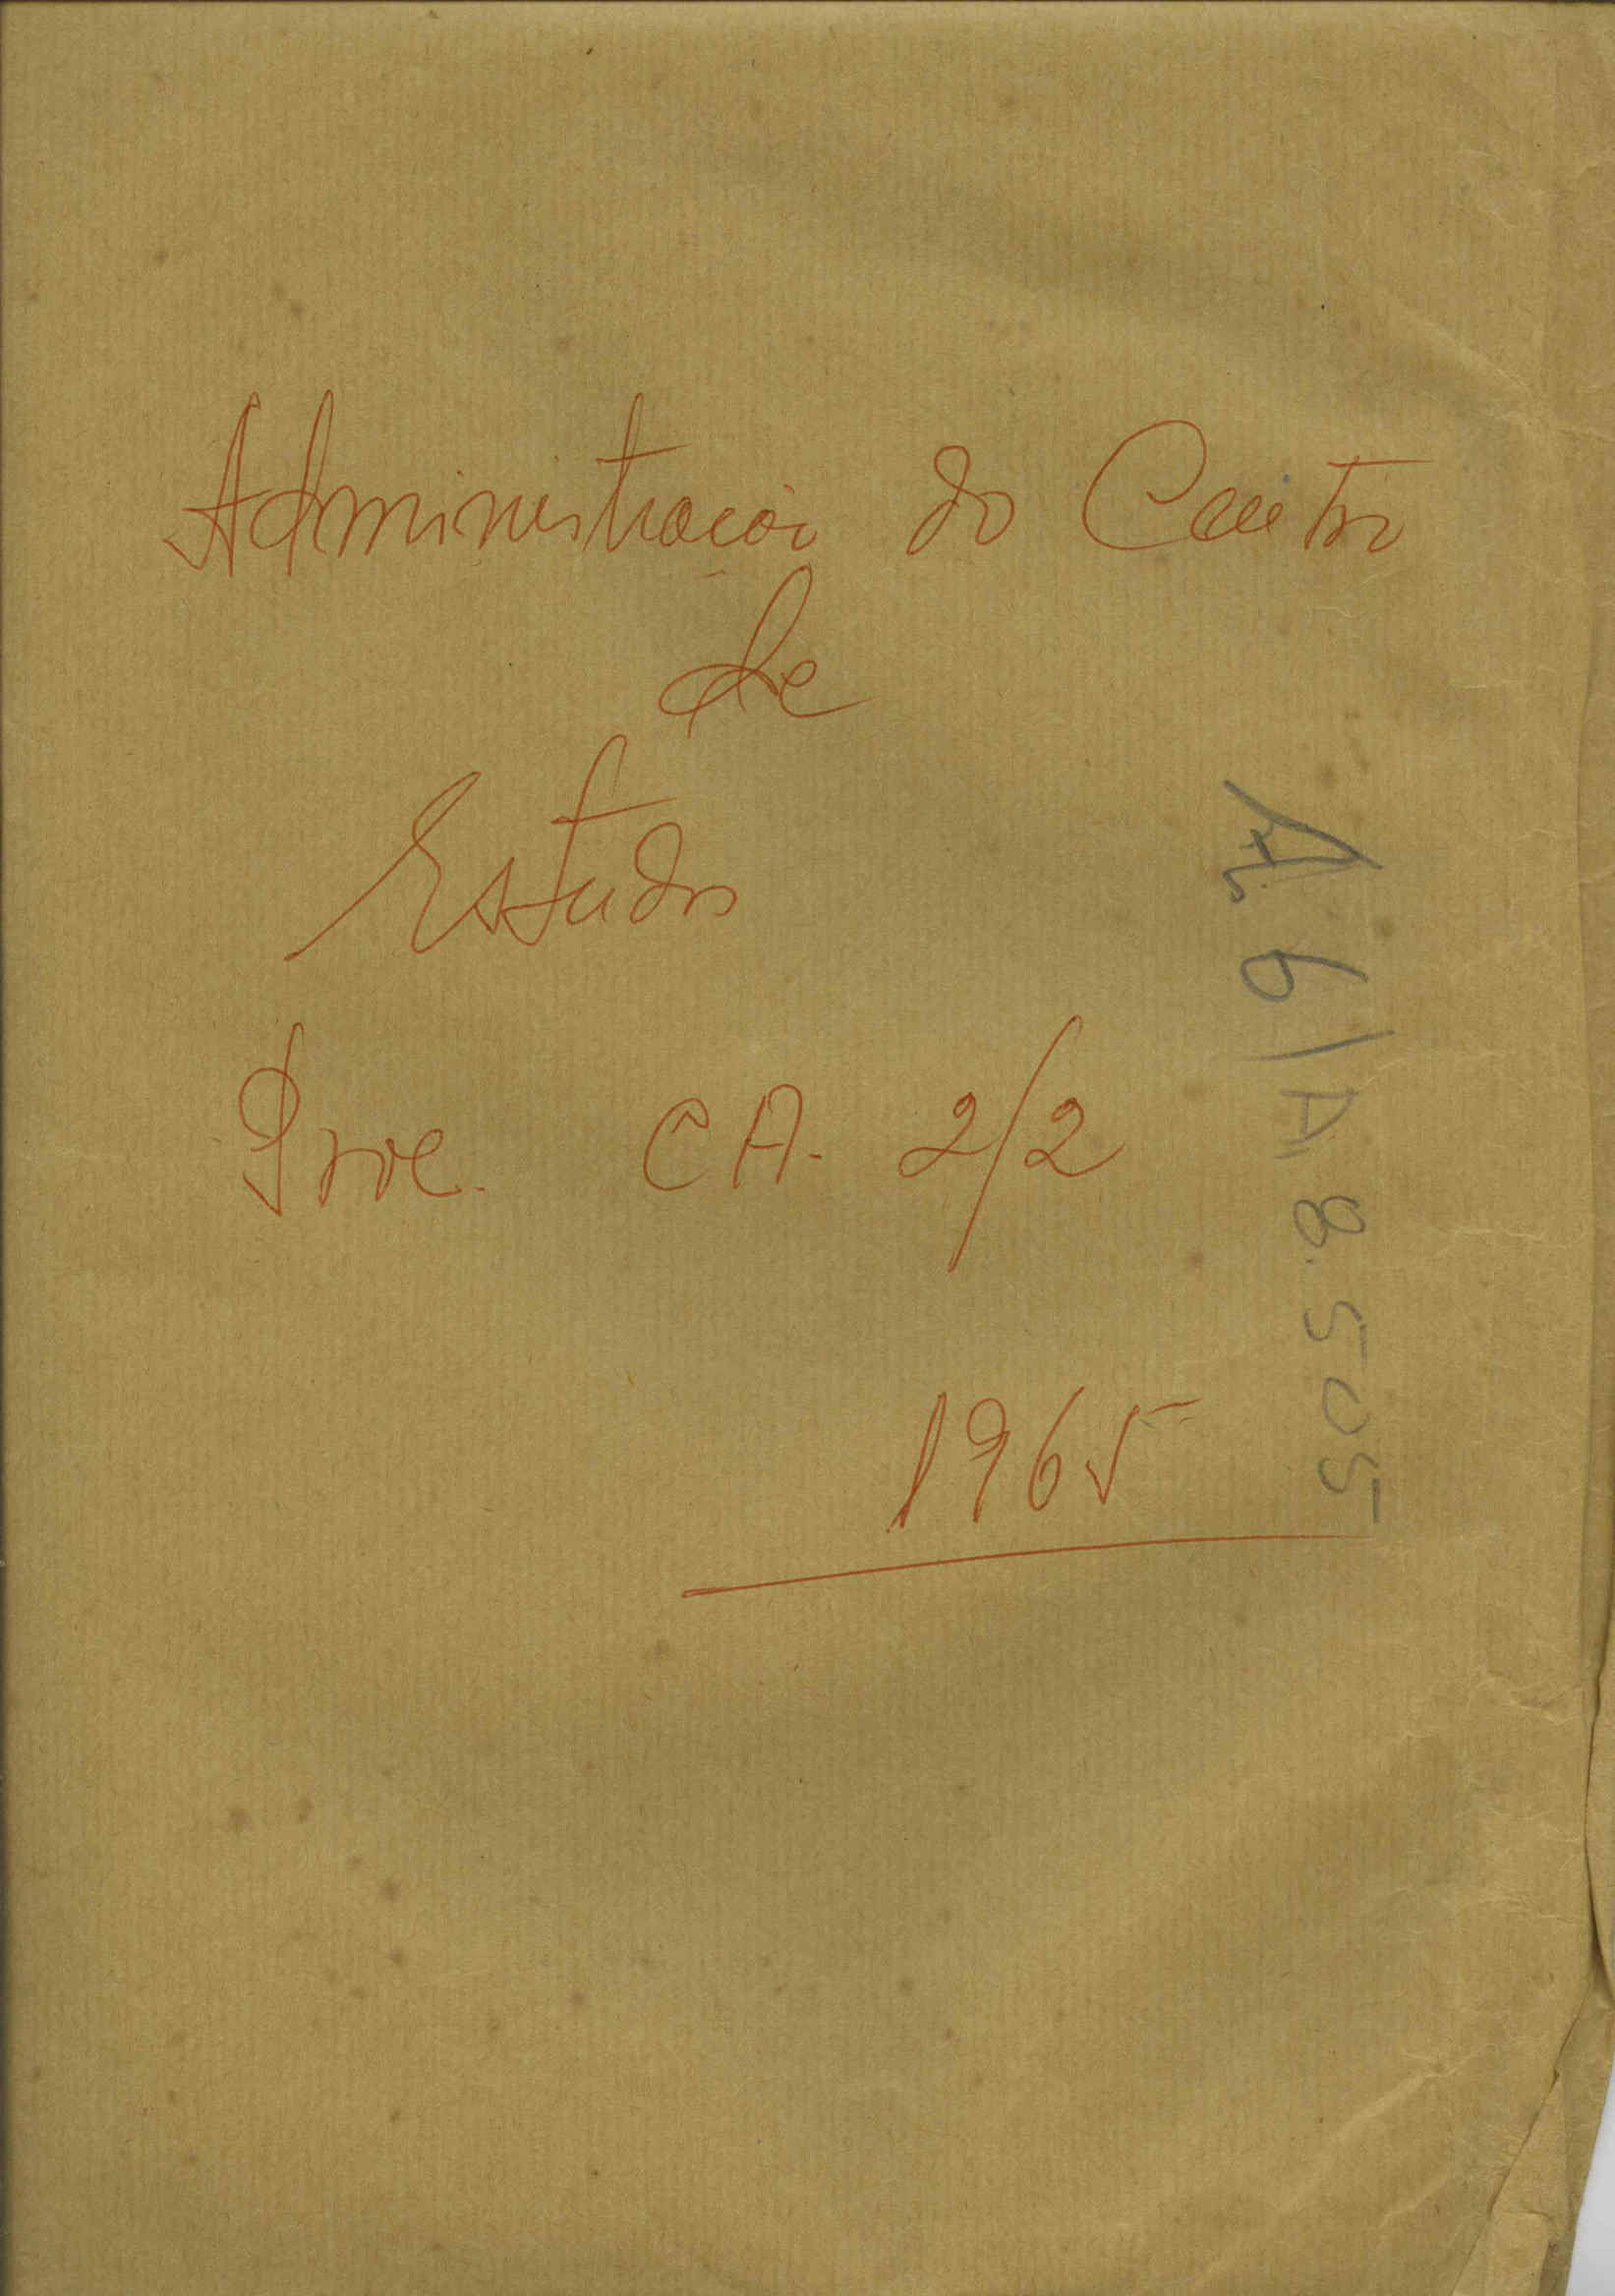 Administração do Centro
de
Estudos
Proc. CA. 2/2
1965
6/A 8.505